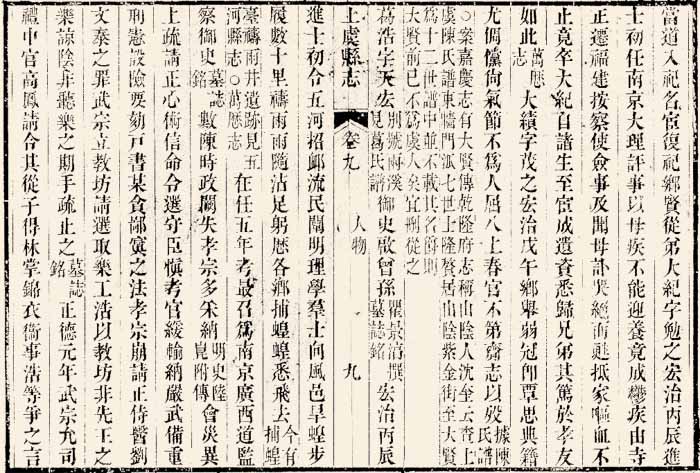 當道入祀名宦復祀鄉賢從弟大紀字勉之宏治丙辰進
士初任南京大理評事以母疾不能迎養竟成鬱疾由寺
正遷福建按察使僉事及聞母訃哭絕而甦抵家嘔血不
止竟卒大紀自諸生至官成遺資悉歸兄弟其篤於孝友
如此萬厯志大績字茂之宏治戊午鄉舉弱冠即覃思典籍
尤倜儻尚氣節不爲人屈八上春官不第齎志以歿據陳氏譜
○案嘉慶志有大賢傳乾隆府志稱山陰人沈奎云查上
虞陳氏譜東墻門派七世士隆贅居山陰紫金街至大賢
爲十二世譜中並不載其名爵則
大賢前已不爲虞人矣宜刪從之
葛浩字天宏別號兩溪見葛氏譜御史啟曾孫瞿景淳撰墓誌銘宏治丙辰
上虞縣志 卷九 人物 九
進士初令五河招鄉流民闡明理學羣士向風邑旱蝗步
履數十里禱雨雨隨沾足躬厯各鄉捕蝗蝗悉飛去今有捕蝗
臺禱雨井遺跡見五河縣志○萬厯志在任五年考最召爲南京廣西道監
察御史墓誌銘數陳時政闕失孝宗多采納明史陸崑附傳會災異
上疏請正心術信命令選守臣愼考官緩輸納嚴武備重
刑憲設險要劾戸書某貪鄙寘之法孝宗崩請正侍醫劉
文泰之罪武宗立教坊請選取樂工浩以教坊非先王之
樂諒陰非聽樂之期手疏止之墓誌銘正德元年武宗允司
禮中官高鳳請令其從子得林掌錦衣衞事浩等爭之言